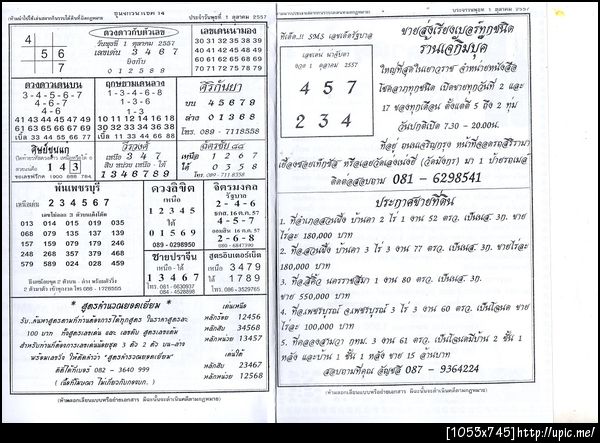 ประจำวันพุธที่ 1 ตุลาคม 2557
4
5 6
7
ดวงดาวกับตัวเลข
วันพุธที่ 1 ตุลาคม 2557
เลขเด่น 3 4 6 7
ยิงกับ
0 1 2 5 8 9
เลขเด่นนามอง
30 31 32 35 38 39
40 41 42 45 48 49
60 61 62 65 68 69
70 71 72 75 78 79
ดวงดาวเดนบน
3-4-5-6-7
4-6-5-7
4-6-7
41 43 44 45 47 49
61 63 65 66 67 69
เบิ้ล 33 44 55 66 77
ฤกษ์ยามเดนลาง
0-1-2-3-8
0-1-3-8
0-1-3
10 30 31 32 33 35
30 32 33 34 36 38
เบิ้ล 00 11 22 33 88
ศิริกันยา
บน 4 5 6 7 9
ล่าง 0 1 3 6 8
โทร. 089 - 7118558
ศิษย์ชนแก
1 4 3
วีรวงศ์
เหนือ - ใต้
1 3 4 6 7 8 9
เหนือ 1 2 6 7
ใต้ 0 3 5 8
โทร. 089-7118558
พันเพชรบุรี
เหนือเด่น 2 3 4 5 6 7
013 014 015 019 035
067 079 091 035 132
157 159 079 179 246
248 268 357 379 468
579 589 024 028 459
ดวงลิขิต
เหนือ
1 2 3 4 5
ใต้
0 1 5 6 9
089-0298950
จิตรมงคล
รัฐบาล
2-4-6
ธกส. 16 ต.ค. 57
4-5-7
ออมสิน 16 ต.ค. 57
2-6-8
080-6847390
ชายปราจีน
เหนือ - ใต้
1 3 4 6 7
โทร. 081-6630937
สูตรอินเตอร์เน็ต
เหนือ 3 4 7 9
ใต้ 1 7 8 9
โทร. 086-3529765
* สูตรคำนวณยอดเยี่ยม *
100 บาท
พร้อมเลขวิ่ง ให้ดีตัวคำว่า "สูตรคำนวณยอดเยี่ยม"
082 - 3640 999
เด่นเหนือ
หลักร้อย 12456
หลักสิบ 34568
หลักหน่วย 13457
เด่นใต้
หลักสิบ 23467
หลักหน่วย 12568
(ห้ามลอกเลียนแบบหรือถ่ายเอกสาร มิฉะนั้นจะดำเนินคดีตามกฎหมาย)
ประจำวันพุธที่ 1 ตุลาคม 2557
ทีเด็ด..!! SMS เลขเด็ดรัฐบาล
เลขเด่น น่าจับตา
งวด 1 ตุลาคม 2557
4 5 7
2 3 4
ขายส่งเรียงเบอร์ทุกชนิด
ร้านเจ๊กิมบุค
ใหญ่ที่สุดในเยาวราช จำหน่ายหนังสือ
โชคลาภทุกชนิด เปิดขายทุกวันที่ 2 และ
17 ของทุกเดือน ตั้งแต่ตี 5 ถึง 2 ทุ่ม
วันปกติเปิด 7.30 - 20.00น.
ที่อยู่ ถนนเจริญกรุง หน้าที่จอดรถสิริรามา
เยื้องซอยเท็กซัส หรือเลยวัดเล่งเน่ยยี่ (วัดมังกร) มา 1 ป้ายรถเมล์
ติดต่อสอบถาม 081 - 6298541
ประกาศขายที่ดิน
1. ที่อำเภอสวนผึ้ง บ้านคา 2 ไร่ 1 งาน 52 ตรว. เป็นนส. 3ก. ขาย
ไร่ละ 180,000 บาท
2. ที่อ.สวนผึ้ง บ้านคา 3 ไร่ 3 งาน 77 ตรว. เป็นนส. 3ก. ขายไร่ละ
180,000 บาท
3. ที่อ.สีคิ้ว นครราชสีมา 1 งาน 80 ตรว. เป็นนส. 3ก.
ขาย 550,000 บาท
4. ที่อ.เพชรบูรณ์ จ.เพชรบูรณ์ 3 ไร่ 3 งาน 60 ตรว. เป็นโฉนด ขาย
ไร่ละ 100,000 บาท
5. ที่คลองสามวา กทม. 3 งาน 61 ตรว. เป็นโฉนดมีบ้าน 2 ชั้น 1
หลัง และบ้าน 1 ชั้น 1 หลัง ขาย 15 ล้านบาท
สอบถามที่คุณ อัญชลี 087 - 9364224
(ห้ามลอกเลียนแบบหรือถ่ายเอกสาร มิฉะนั้นจะดำเนินคดีตามกฎหมาย)
[1053x745]http://upic.me/